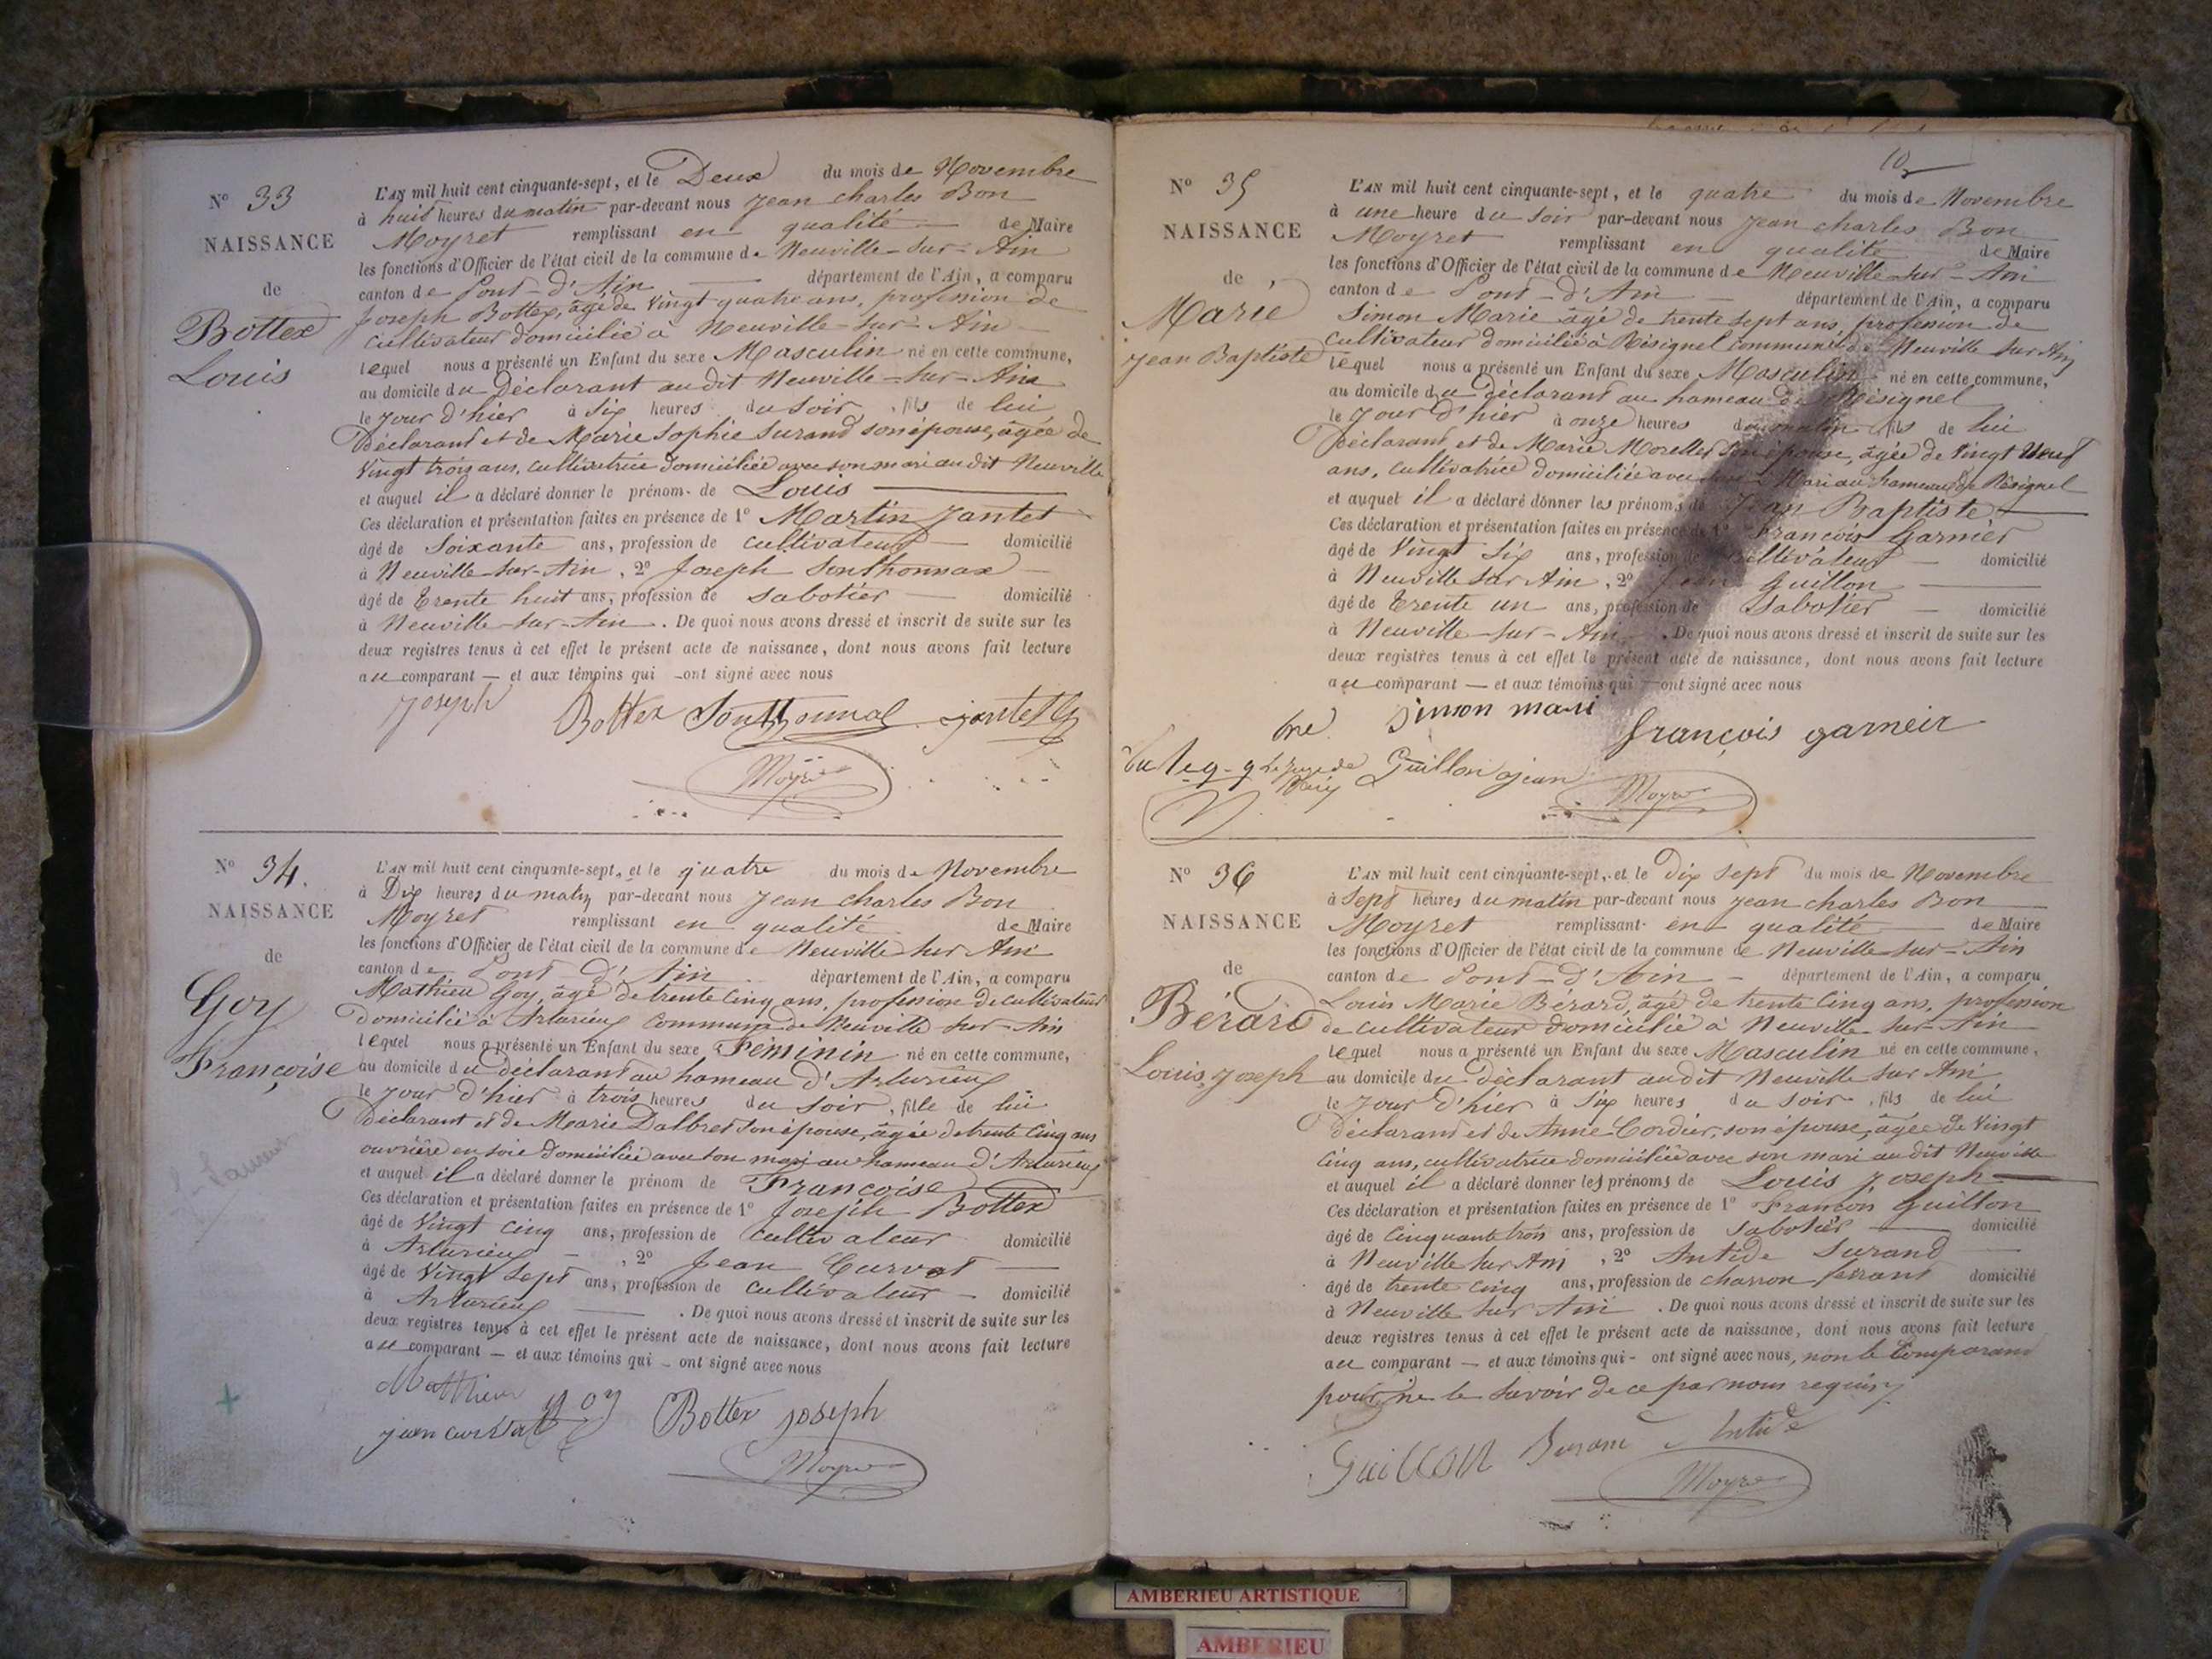 N° 33
NAISSANCE
de
Bottex
Louis
L'AN mil huit cent cinquante-sept, et le Deux du mois de Novembre
à huit heures du matin par-devant nous Jean charles Bon
Moyret remplissant en qualité de Maire
les fonctions d'Officier de l'état civil de la commune de Neuville-sur-Ain
canton de Pont-d'Ain département de l'Ain, a comparu
Joseph Bottex, âgé de Vingt quatre ans, profession de
cultivateur domicilié à Neuville-sur-Ain
lequel nous a présenté un Enfant du sexe Masculin né en cette commune,
au domicile du Déclarant audit Neuville-sur-Ain
le jour d'hier à six heures du soir, fils de lui
Déclarant et de Marie Sophie Surand son épouse, âgée de
Vingt trois ans, cultivatrice domiciliée avec son mari audit Neuville
et auquel il a déclaré donner le prénom de Louis
Ces déclaration et présentation faites en présence de 1° Martin Jantet
âgé de Soixante ans, profession de cultivateur domicilié
à Neuville-sur-Ain, 2° Joseph Sonthonnax
âgé de Trente huit ans, profession de sabotier domicilié
à Neuville-sur-Ain. De quoi nous avons dressé et inscrit de suite sur les
deux registres tenus à cet effet le présent acte de naissance, dont nous avons fait lecture
au comparant — et aux témoins qui ont signé avec nous
Joseph Bottex Sonthonnax jantet
Moyret
N° 34.
NAISSANCE
de
Goy
Françoise
L'AN mil huit cent cinquante-sept, et le quatre du mois de Novembre
à Dix heures du matin par-devant nous Jean charles Bon
Moyret remplissant en qualité de Maire
les fonctions d'Officier de l'état civil de la commune de Neuville sur Ain
canton de Pont-d'Ain département de l'Ain, a comparu
Mathieu Goy, âgé de trente cinq ans, profession de cultivateur
domicilié à Arturieux commune de Neuville sur-Ain
lequel nous a présenté un Enfant du sexe Féminin né en cette commune,
au domicile du déclarant au hameau d'Arturieux
le jour d'hier à trois heures du soir, fille de lui
Déclarant et de Marie Dalbret son épouse, âgée de trente cinq ans
ouvrière en soie domiciliée avec son mari au hameau d'Arturieux
et auquel il a déclaré donner le prénom de Françoise
Ces déclaration et présentation faites en présence de 1° Joseph Bottex
âgé de Vingt cinq ans, profession de cultivateur domicilié
à Arturieux, 2° Jean Curvat
âgé de Vingt sept ans, profession de cultivateur domicilié
à Arturieux. De quoi nous avons dressé et inscrit de suite sur les
deux registres tenus à cet effet le présent acte de naissance, dont nous avons fait lecture
au comparant — et aux témoins qui ont signé avec nous
Mathieu goy Bottex joseph
jean curvat
Moyret
10
N° 35
NAISSANCE
de
Marie
Jean Baptiste
L'AN mil huit cent cinquante-sept, et le quatre du mois de Novembre
à une heure du soir par-devant nous Jean charles Bon
Moyret remplissant en qualité de Maire
les fonctions d'Officier de l'état civil de la commune de Neuville-sur-Ain
canton de Pont-d'Ain département de l'Ain, a comparu
Simon Marie âgé de trente sept ans, profession de
Cultivateur domicilié à Résignel commune de Neuville sur Ain
lequel nous a présenté un Enfant du sexe Masculin né en cette commune,
au domicile du Déclarant au hameau de Résignel
le jour d'hier à onze heures du matin, fils de lui
Déclarant et de Marie Morellet son épouse, âgée de Vingt Neuf
ans, cultivatrice domiciliée avec son Mari au hameau de Résignel
et auquel il a déclaré donner les prénoms de Jean Baptiste
Ces déclaration et présentation faites en présence de 1° François Garnier
âgé de Vingt Six ans, profession de cultivateur domicilié
à Neuville sur Ain, 2° Jean Guillon
âgé de Trente un ans, profession de Sabotier domicilié
à Neuville-sur-Ain. De quoi nous avons dressé et inscrit de suite sur les
deux registres tenus à cet effet le présent acte de naissance, dont nous avons fait lecture
au comparant — et aux témoins qui ont signé avec nous
Simon mari françois garneir
Guillon jean
Moyret
N° 36
NAISSANCE
de
Bérard
Louis Joseph
L'AN mil huit cent cinquante-sept, et le Dix sept du mois de Novembre
à Sept heures du matin par-devant nous Jean charles Bon
Moyret remplissant en qualité de Maire
les fonctions d'Officier de l'état civil de la commune de Neuville-sur-Ain
canton de Pont-d'Ain département de l'Ain, a comparu
Louis Marie Bérard, âgé de trente cinq ans, profession
de cultivateur domicilié à Neuville-sur-Ain
lequel nous a présenté un Enfant du sexe Masculin né en cette commune,
au domicile du Déclarant audit Neuville sur Ain
le jour d'hier à six heures du soir, fils de lui
déclarant et de Anne Cordier, son épouse, âgée de Vingt
cinq ans, cultivatrice domiciliée avec son mari au dit Neuville
et auquel il a déclaré donner les prénoms de Louis Joseph
Ces déclaration et présentation faites en présence de 1° François Guillon
âgé de Cinquante trois ans, profession de Sabotier domicilié
à Neuville sur Ain, 2° Antide Surand
âgé de trente cinq ans, profession de charron ferrant domicilié
à Neuville sur Ain. De quoi nous avons dressé et inscrit de suite sur les
deux registres tenus à cet effet le présent acte de naissance, dont nous avons fait lecture
au comparant — et aux témoins qui ont signé avec nous, non le Comparant
pour ne le savoir de ce par nous requis
Guillon Surand Antide
Moyret
AMBERIEU ARTISTIQUE
AMBERIEU